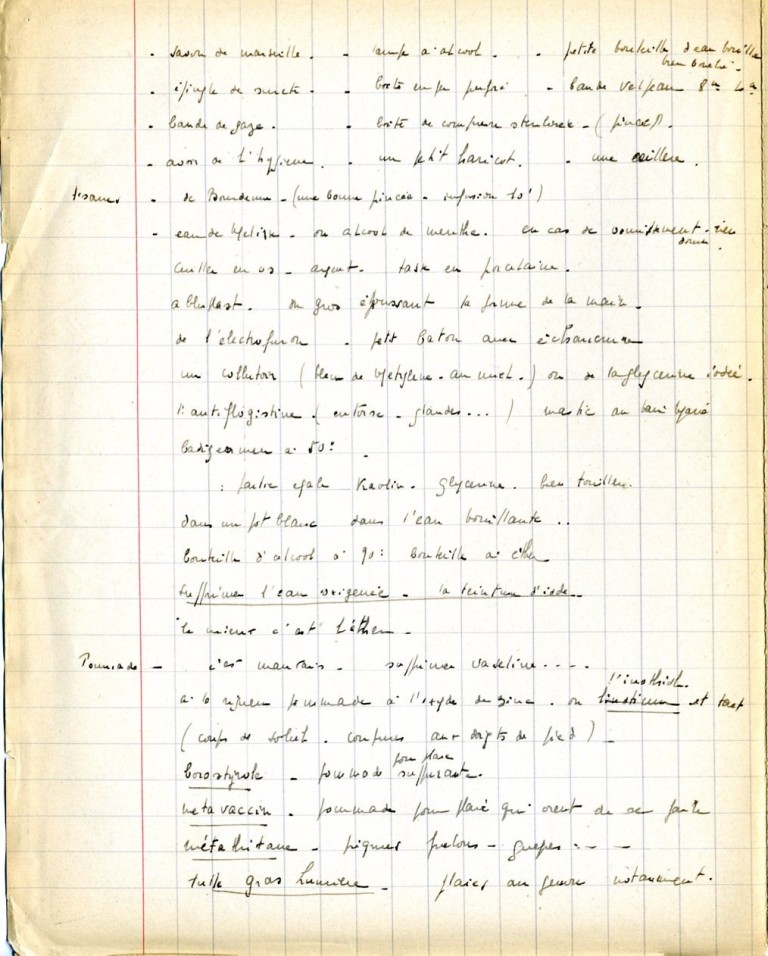 . savon de marseille . . lampe à alcool . . petite bouteille d'eau bouillie
bien bouchée .
. épingle de sureté - . boîte un peu perforé - bande velpeau 8m 4m
. bande de gaze . . boîte de compresse sterilisée - ( pinces ) .
. avoir de l'hygiène . . un petit haricot . . une cuillère .
tisanes . de Bourdaine - ( une bonne pincée - infusion 10' )
. eau de Mélisse - ou alcool de menthe . en cas de vomissement - rien
donner .
cuiller en os - argent . tasse en porcelaine .
ou gros épousant la forme de la main .
de l' . petit baton avec échancrure
un collutoire ( bleu de Métylène - ) ou de la glycerine iodée .
l'antiflogistine ( entorse - glandes ... ) mastic au bain Marie
à 50° .
: partie égale Kaolin . glycerine . bien
dans un pot blanc dans l'eau bouillante ..
bouteille d'alcool à 90° bouteille à éther
supprimer l'eau oxigenée - la teinture d'iode -
le mieux c'est l'éther -
Pommade - c'est mauvais - supprimer vaseline ....
l'inothiol .
à la rigueur pommade à l'oxyde de zinc . ou et tact
( coups de soleil . coupures aux doigts de pied ) -
pour plaie
borostyrole - pommade suppurante .
netavaccin . pommade pour plaie qui vient de se faire
métathitane - piqures frelons - guepes - -
tulle gras Lumière - plaies au genou notamment .